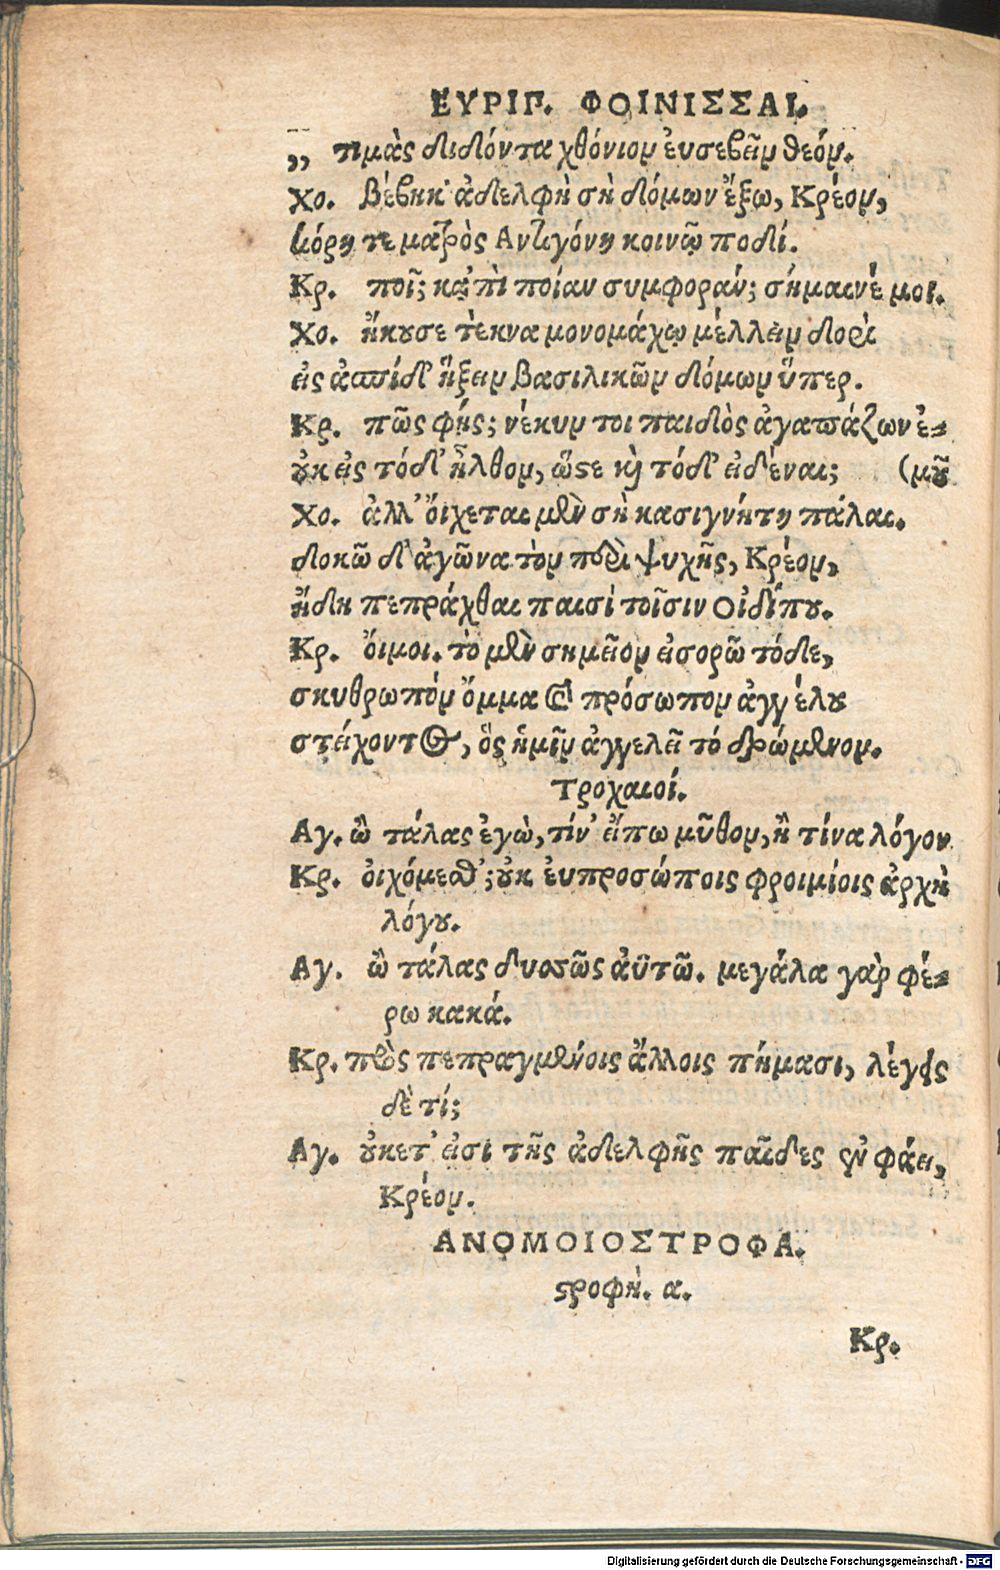 ΕΥΡΙΠ. ΦΟΙΝΙΣΣΑΙ.
„ τιμὰς διδόντα χθόνιον ἐυσεβεῖν θεόν.
Χο. Βέβηκ' ἀδελφὴ σὴ δόμων ἔξω, Κρέον,
κόρη τε μητρὸς Ἀντιγόνη κοινῷ ποδί.
Κρ. ποῖ; κἀπὶ ποίαν συμφοράν; σήμαινέ μοι.
Χο. ἤκουσε τέκνα μονομάχῳ μέλλειν δορὶ
εἰς ἀσπίδ' ἥξειν βασιλικῶν δόμων ὕπερ.
Κρ. πῶς φής; νέκυν τοι παιδὸς ἀγαπάζων ἐ-
οὐκ εἰς τόδ' ἦλθον, ὥστε καὶ τόδ' εἰδέναι; (μοῦ
Χο. ἀλλ' ὄιχεται μὲν σὴ κασιγνήτη πάλαι.
δοκῶ δ' ἀγῶνα τὸν περὶ ψυχῆς, Κρέον,
ἤδη πεπράχθαι παισὶ τοῖσιν Οἰδίπου.
Κρ. ὄιμοι. τὸ μὲν σημεῖον εἰσορῶ τόδε,
σκυθρωπὸν ὄμμα καὶ πρόσωπον ἀγγέλου
στείχοντος, ὃς ἡμῖν ἀγγελεῖ τὸ δρώμενον.
τροχαιοί.
Αγ. ὢ τάλας ἐγὼ, τίν' εἴπω μῦθον, ἢ τίνα λόγον
Κρ. οἰχόμεσθ'; οὐκ ἐυπροσώποις φροιμίοις ἀρχὴ
λόγου.
Αγ. ὢ τάλας δυσσῶς ἀϋτῶ. μεγάλα γὰρ φέ-
ρω κακά.
Κρ. πρὸς πεπραγμένοις ἄλλοις πήμασι, λέγεις
δὲ τί;
Αγ. οὐκετ' εἰσὶ τῆς ἀδελφῆς παῖδες ἐν φάει,
Κρέον.
ΑΝΟΜΟΙΟΣΤΡΟΦΑ.
στροφὴ. α.
Κρ.
Digitalisierung gefördert durch die Deutsche Forschungsgemeinschaft - DFG